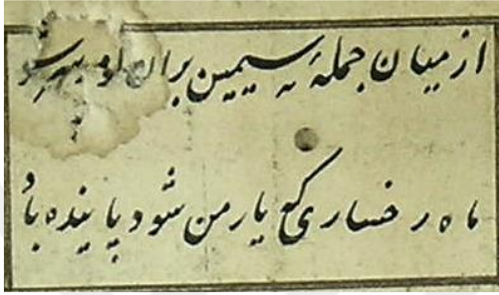 از میان جملهٔ سیمین بران او بهتر
ماه رخساری که یار من شود پاینده باد